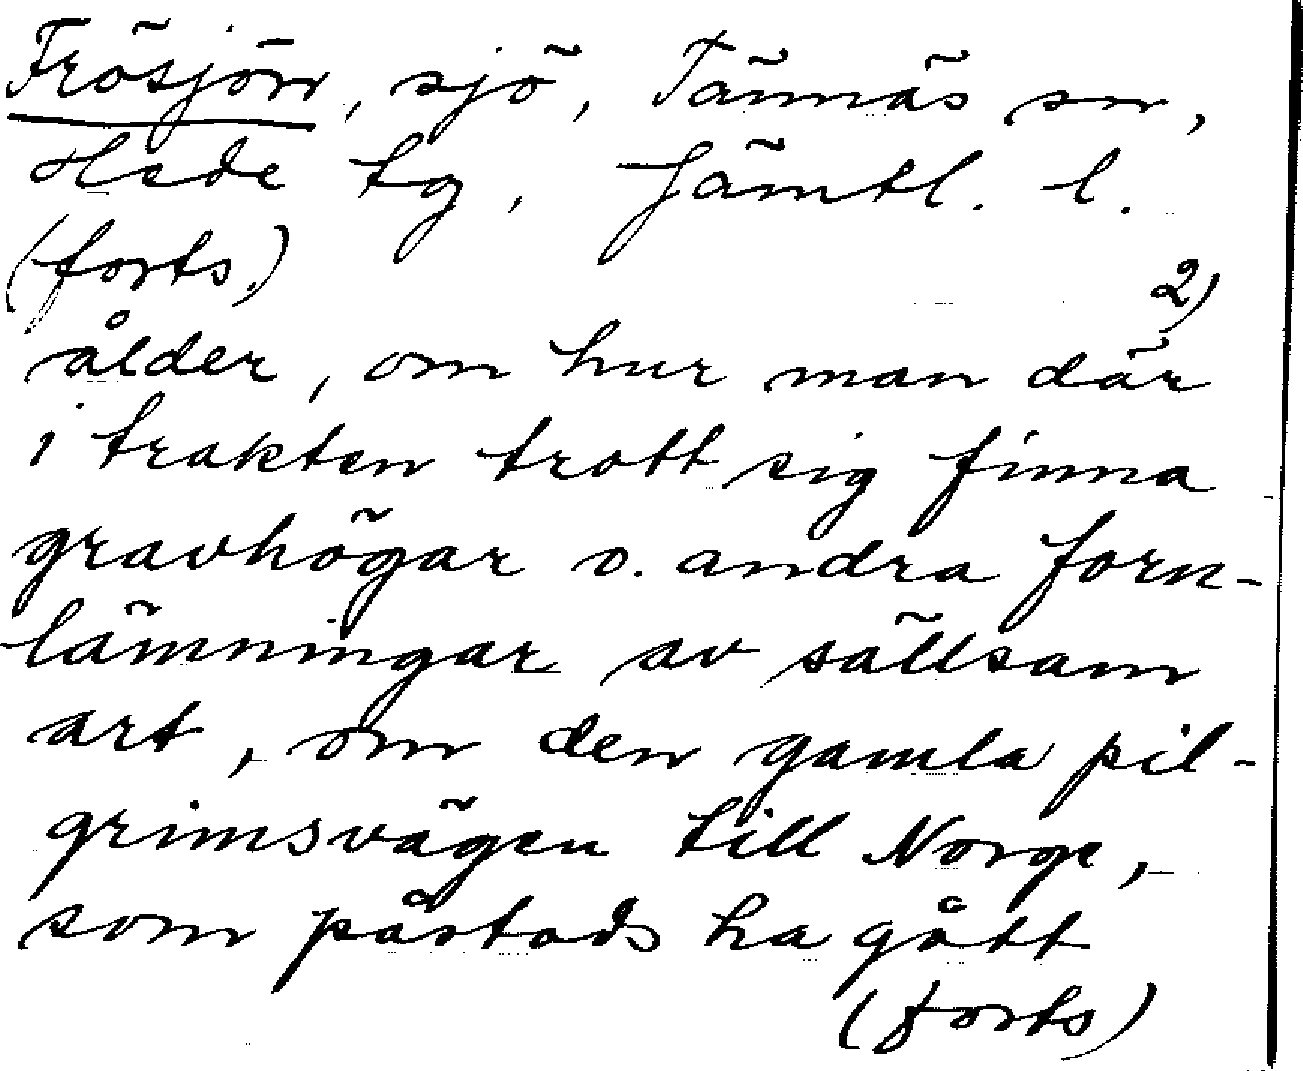 Frösjön, sjö, Tännäs sn,
Hede tg, Jämtl. l.
(forts.)
2)
ålder, om hur man där
i trakten trott sig finna
gravhögar o. andra forn-
lämningar av sällsam
art, om den gamla pil-
grimsvägen till Norge,
som påstods ha gått
(forts)